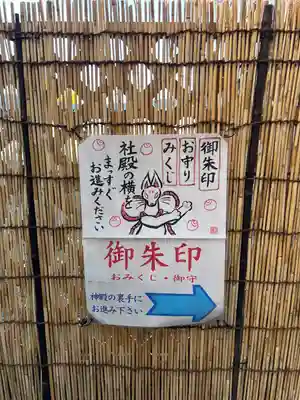 御朱印
お守り
みくじ
社殿の横を
まっすぐ
お進みください
御朱印
おみくじ・御守
神殿の裏手に
お進み下さい